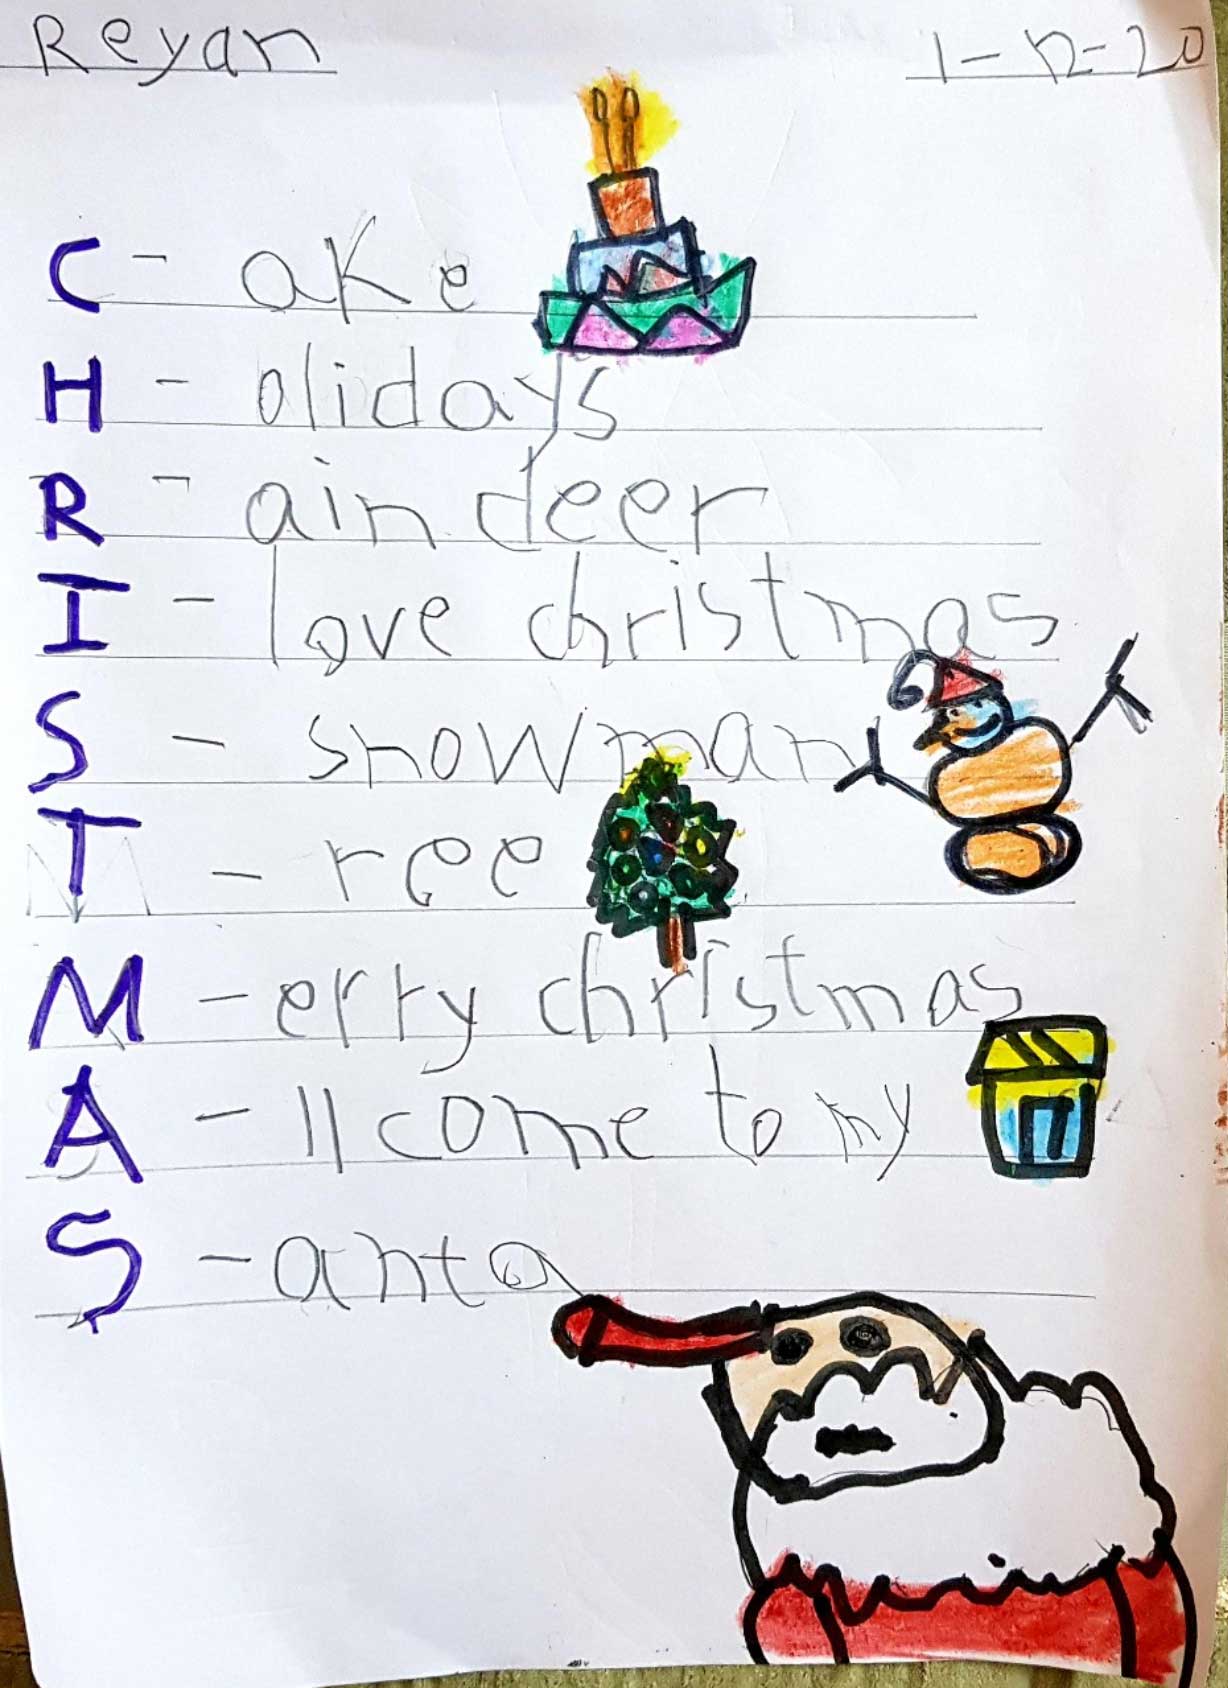 Reyan 1-12-20
C - ake
H - olidays
R - aindeer
I - love christmas
S - snowman
T - ree
M - erry christmas
A - ll come to my
S - anta